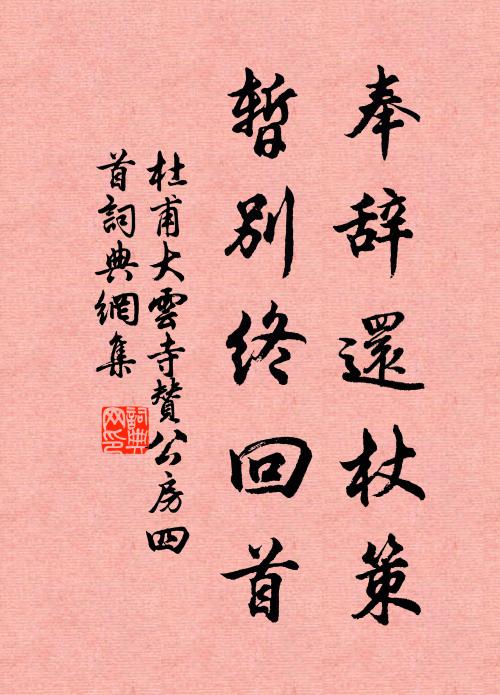 奉辞還杖策
暫別终回首
杜甫大雲寺贊公房四
首詞典網集
詞典网印